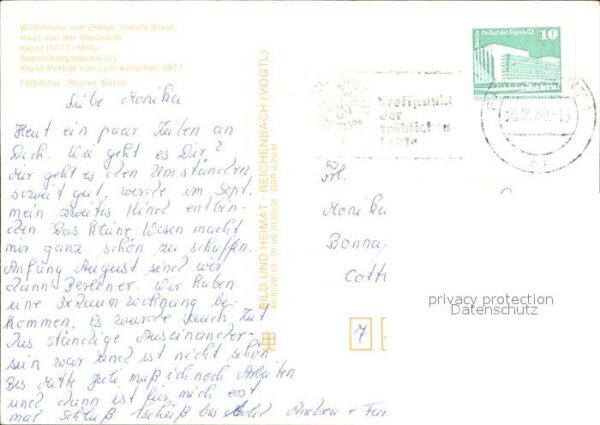 Wilhelmine von Zenge, Kleists Braut
Haus von der Westseite
Kleist (1777-1811)
Ausstellungsräume (2)
Kleist-Porträt von Lutz Ketscher, 1977
Farbfotos: Reuter, Berlin
Liebe Monika
Heut ein paar Zeilen an
Dich. Wie geht es Dir?
Mir geht es den Umständen
soweit gut, werde im Sept.
mein zweites Kind entbin-
den Das kleine Wesen macht
mir ganz schön zu schaffen.
Anfang August sind wir
dann Berliner. Wir haben
eine 3xRaumwohnung be-
kommen. Es wurde auch Zeit
das ständige Auseinander-
sein war und ist nicht schön.
Bis Mitte Juli muß ich noch Arbeiten
und dann ist für mich erst
mal Schluß tschüß bis bald Andrea + Fam
BILD UND HEIMAT REICHENBACH (VOGTL)
01 05 0120/31 DDR 0,20 M
Palast der Republik
10
DDR
treffpunkt
der
fröhlichen
Leute
Frl.
Monika
Bonna
Cott
7
privacy protection
Datenschutz